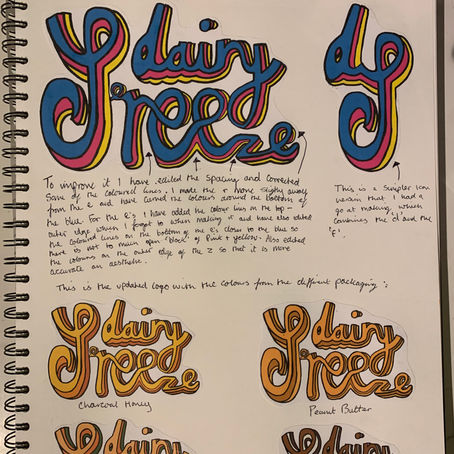 dairy
freeze
df
To improve it I have edited the spacing and corrected
some of the coloured lines. I made the r move slightly away
from the e and have curved the colours around the bottom of
the blue. For the e's I have added the colour lines on the top
outer edge which I forgot to when making it and have also edited
the coloured lines on the bottom of the e's closer to the blue so
there is not to main open 'block' of pink + yellow. Also edited
the colours on the outer edge of the z so that it is more
accurate an aesthetic.
This is a simpler icon
version that I had a
go at making, which
combines the 'd' and the
'f'.
This is the updated logo with the colours from the different packaging:
dairy
freeze
Charcoal Honey
dairy
freeze
Peanut Butter
dairy
dairy